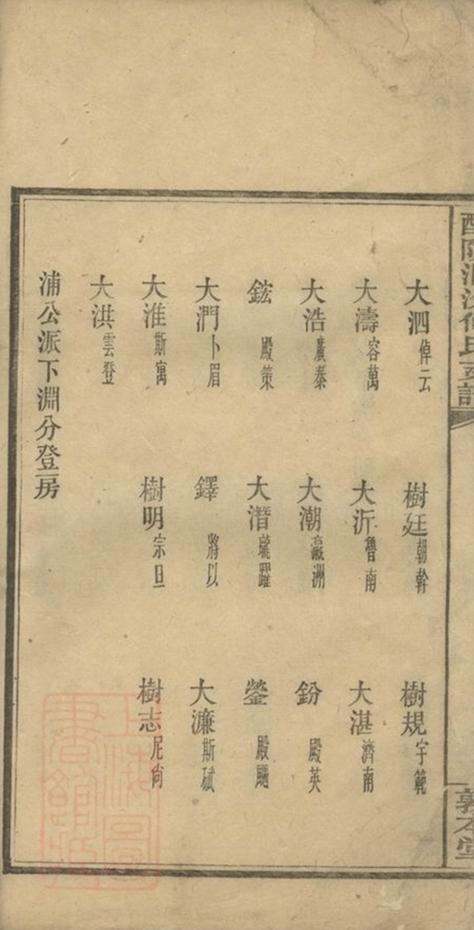 大泗倬云 樹廷朝幹 樹規宇範
大濤容萬 大沂魯南 大湛濟南
大浩廣秦 大潮瀛洲 鈖殿英
鋐殿策 大潛毓躍 鎣殿颺
大澗卜眉 鐸將以 大濂斯斌
大淮斯寓 樹明宗旦 樹志尼尚
大洪雲登
浦公派下淵分登一房
敦本堂